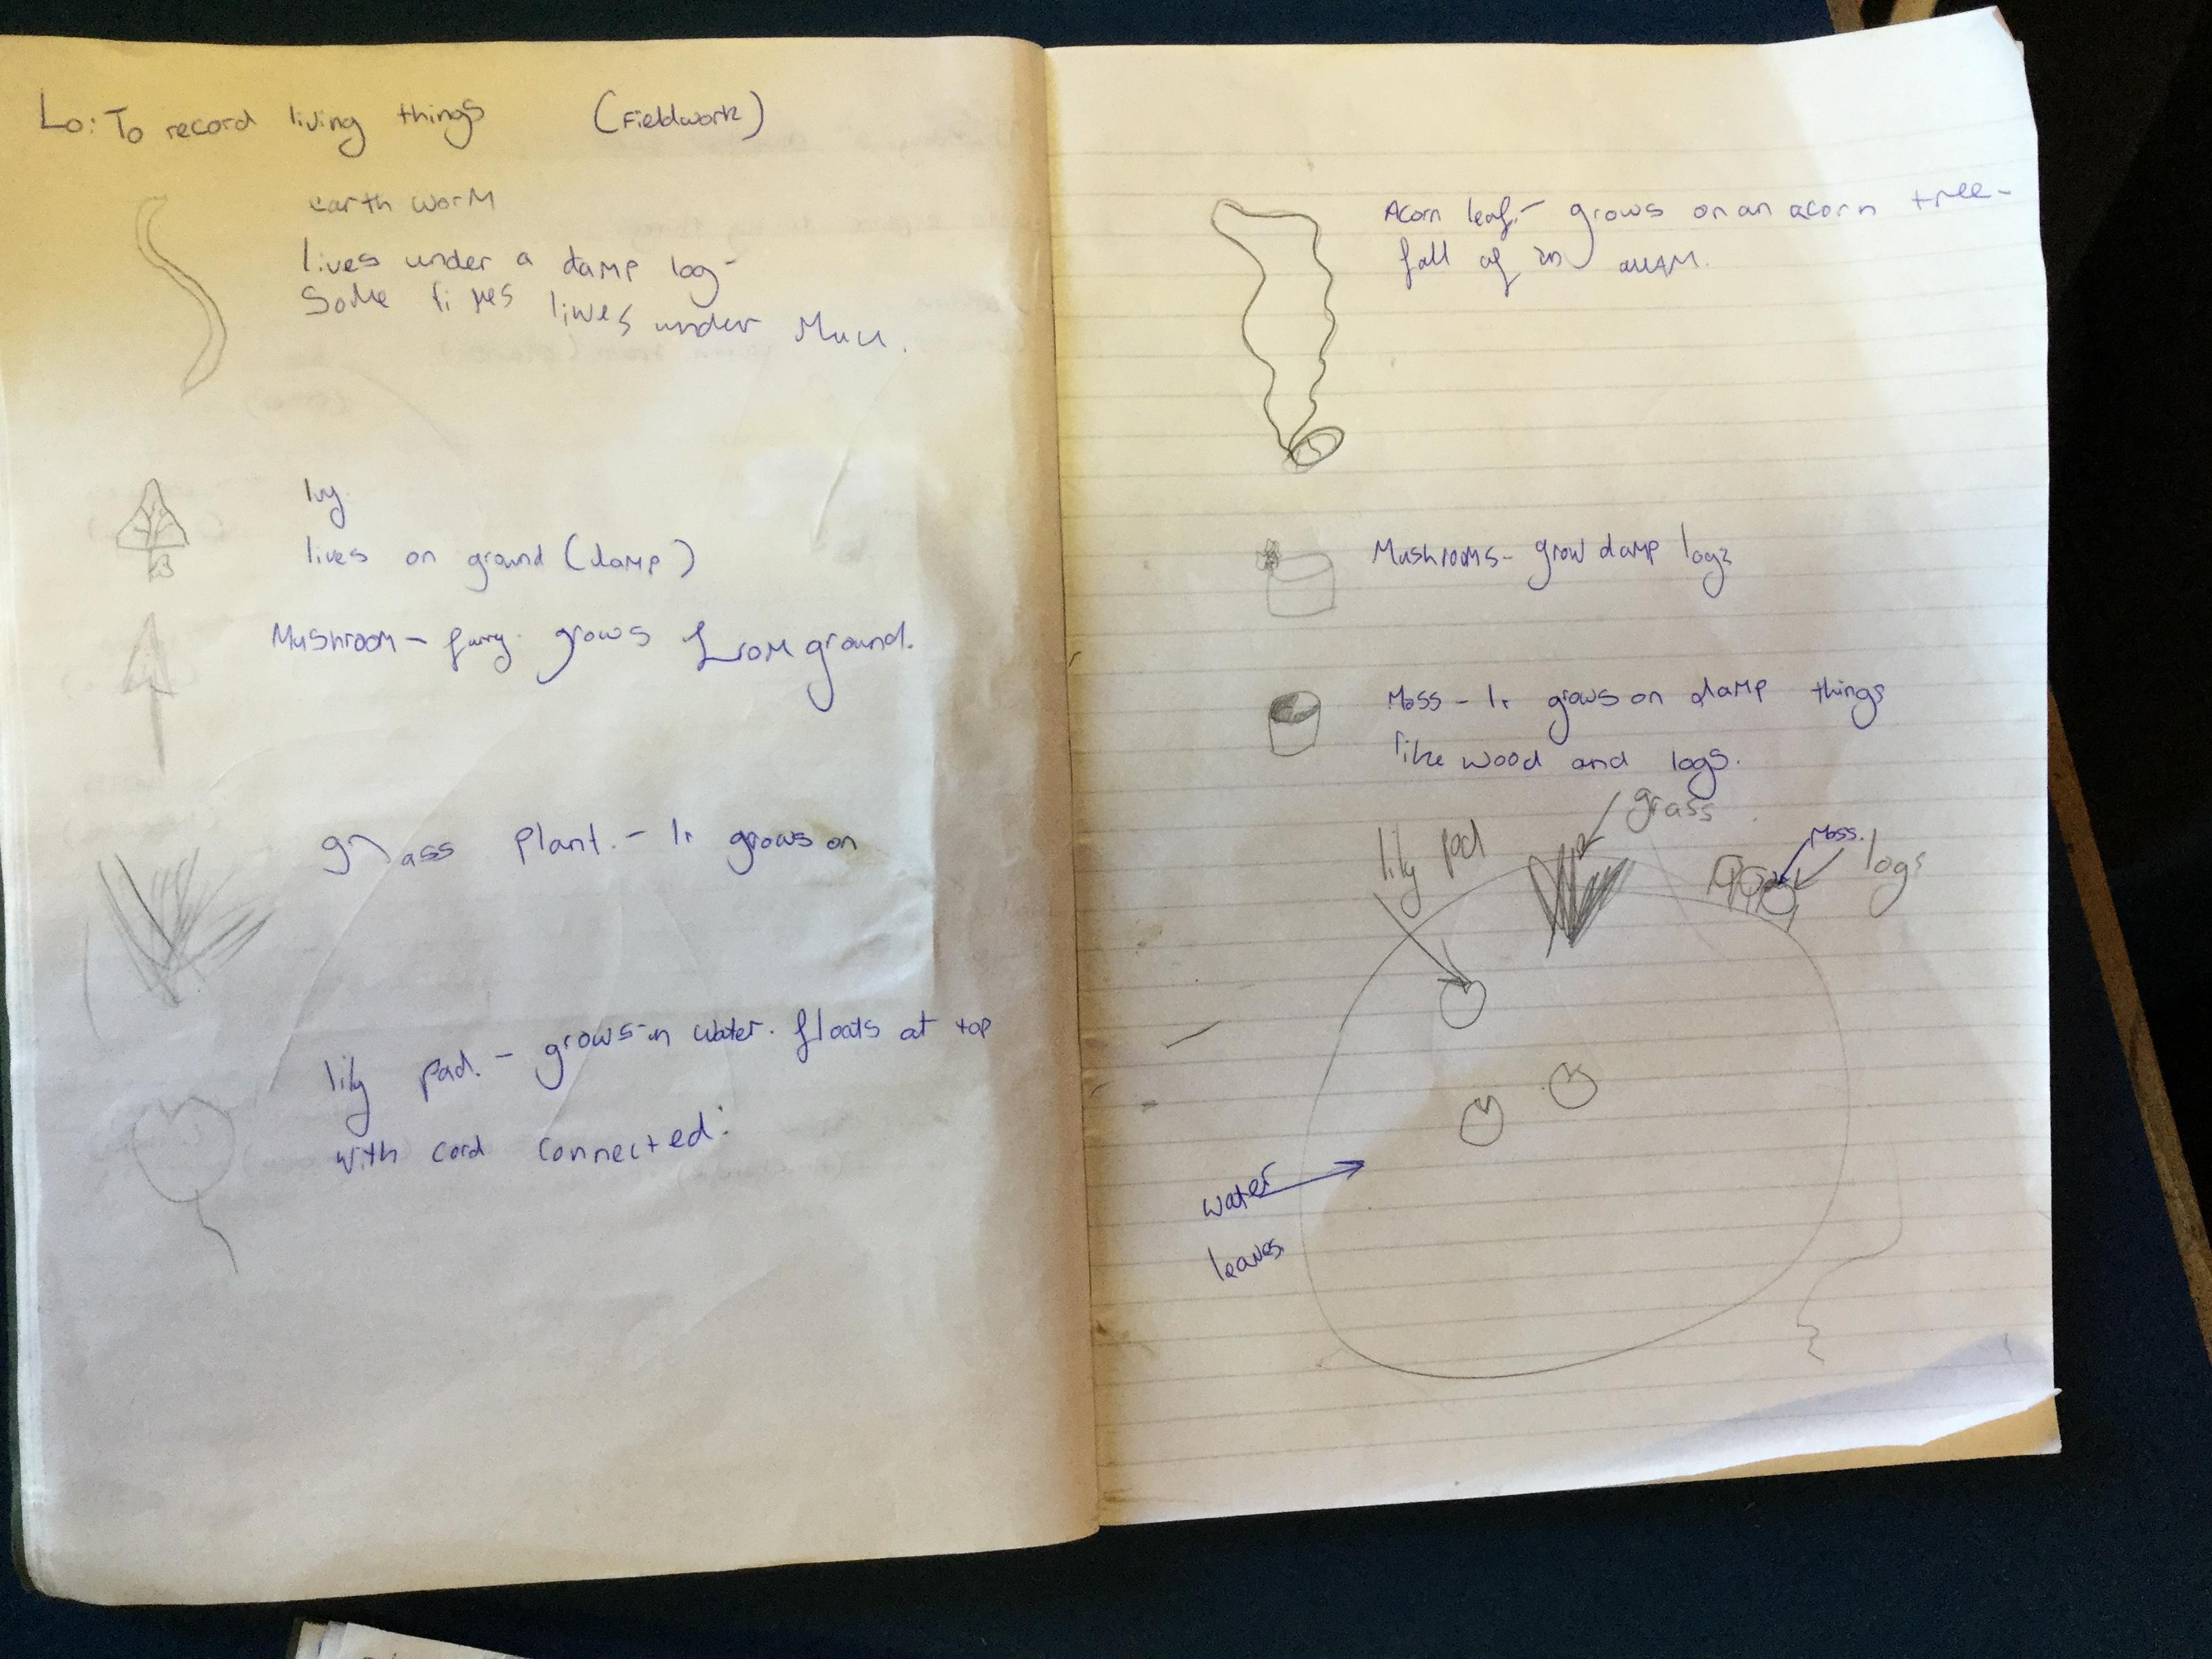 Lo: To record living things (Fieldwork)
earth worm
lives under a damp log-
Some times lives under Muck.
Ivy
lives on ground (damp)
Mushroom - furry. grows from ground.
grass plant. - It grows on
lily pad. - grows in water. floats at top
with cord connected.
Acorn leaf. - grows on an acorn tree-
fall of in
Mushrooms - grow damp logs
Moss - It grows on damp things
like wood and logs.
grass
lily pad
Moss.
logs
water
leaves